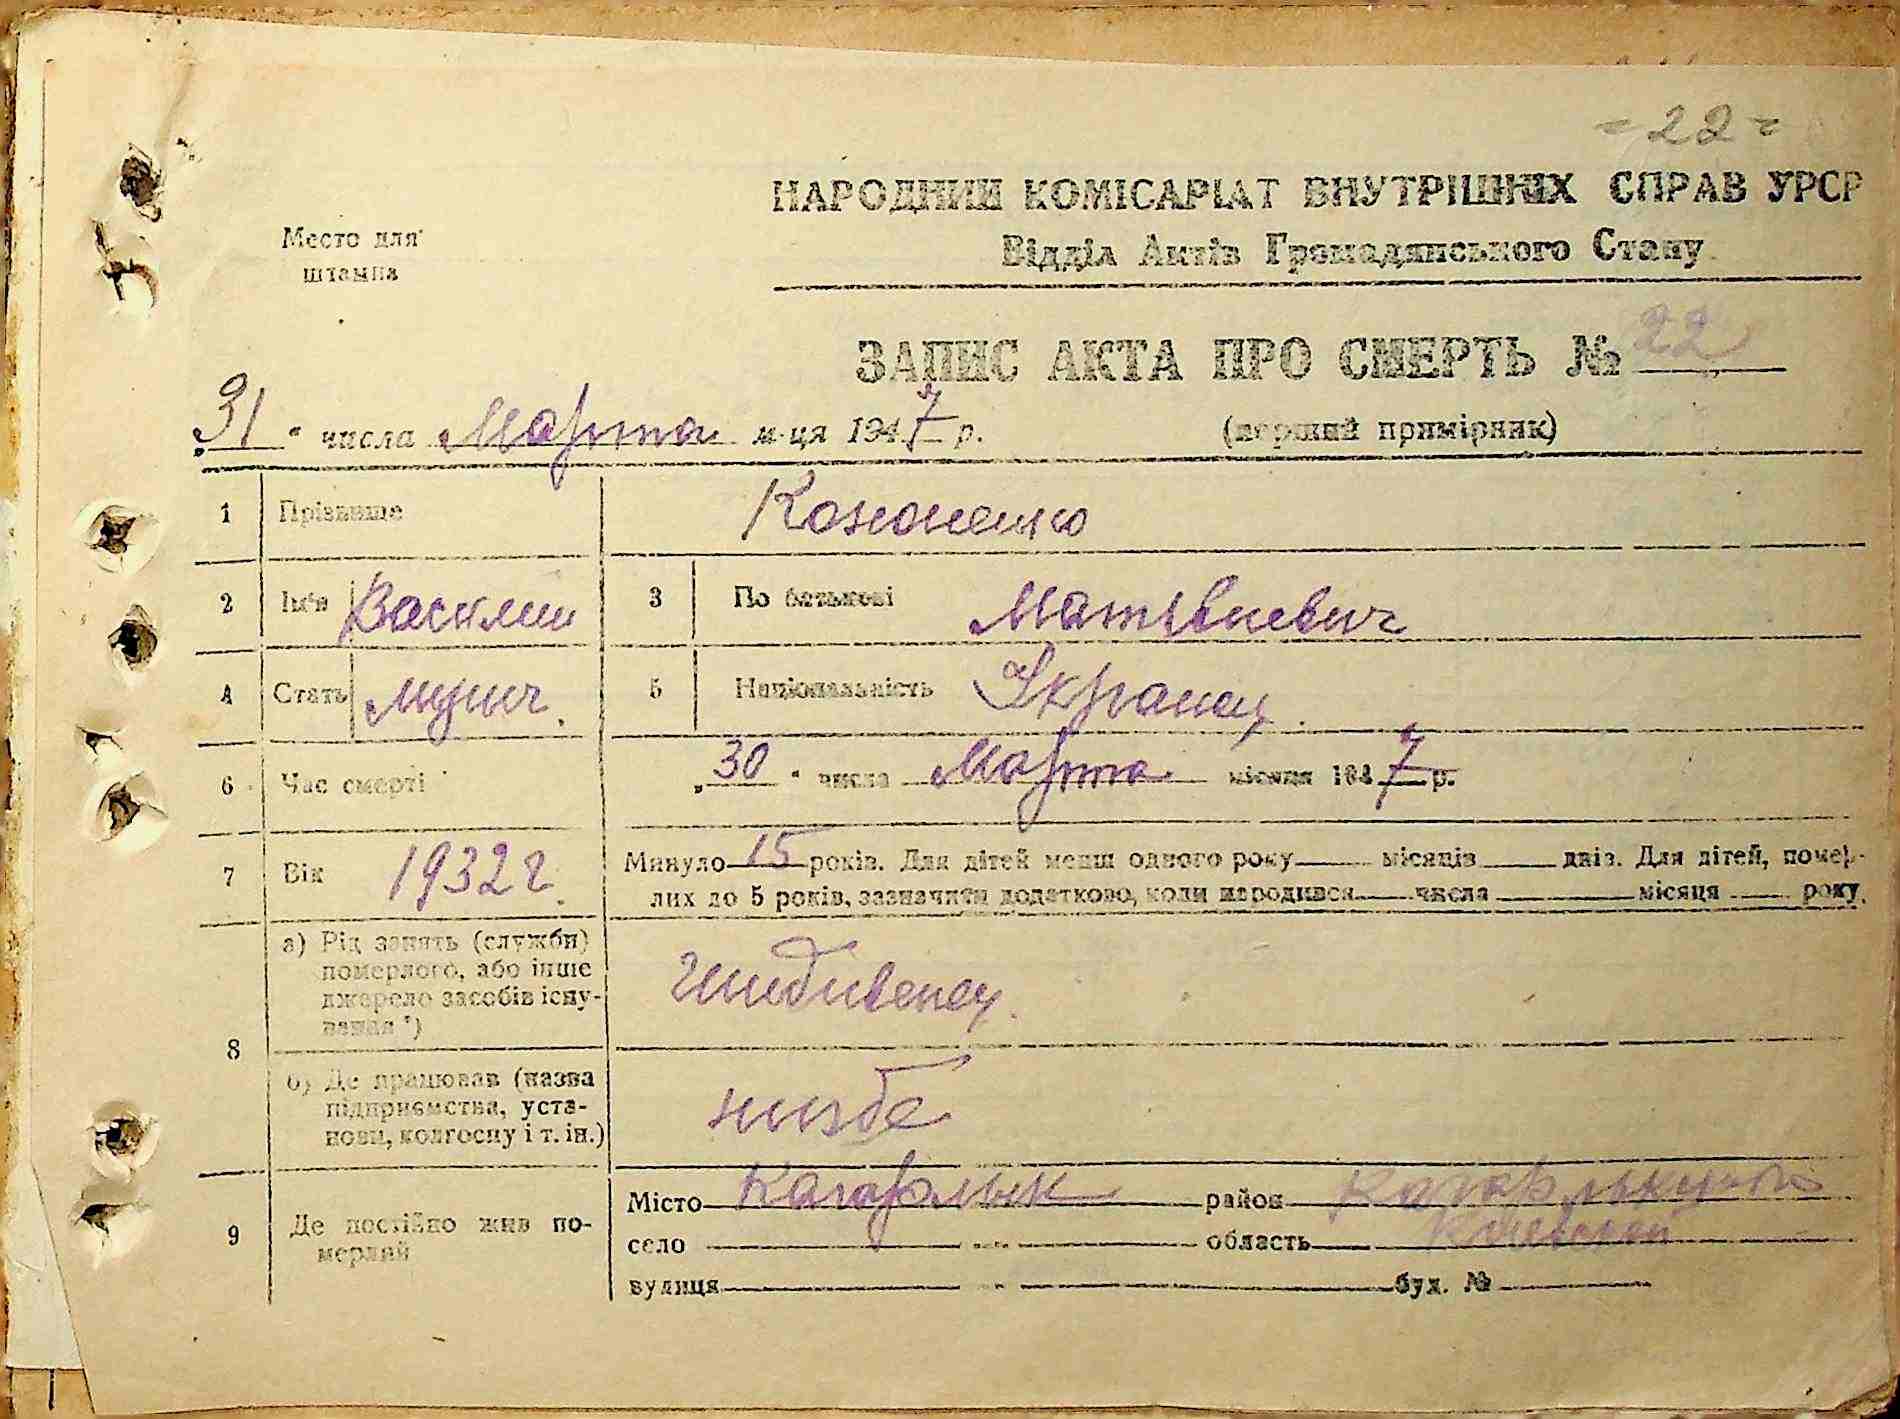 = 22 =
НАРОДНИЙ КОМІСАРІАТ ВНУТРІШНІХ СПРАВ УРСР
Відділ Актів Громадянського Стану
Место для
штампа
ЗАПИС АКТА ПРО СМЕРТЬ № 22
„31" числа Марта м-ця 1947 р.
(перший примірник)
1 Прізвище Кононенко
2 Ім'я Василий 3 По батькові Матвиевич
4 Стать мужч. 5 Національність Украинец.
6 Час смерті „30" числа Марта місяця 1947 р.
7 Вік 1932 г. Минуло 15 років. Для дітей менш одного року місяців днів. Для дітей, помер-
лих до 5 років, зазначити додатково, коли народився числа місяця року.
8 а) Рід занять (служби)
померлого, або інше
джерело засобів існу-
вання *)
Иждивенец.
б) Де працював (назва
підприємства, уста-
нови, колгоспу і т. ін.)
9 Де постійно жив по-
мерлий
Місто Кагарлык район Кагарлыцкого
село - " - область Киевской
вулиця - " - буд. №